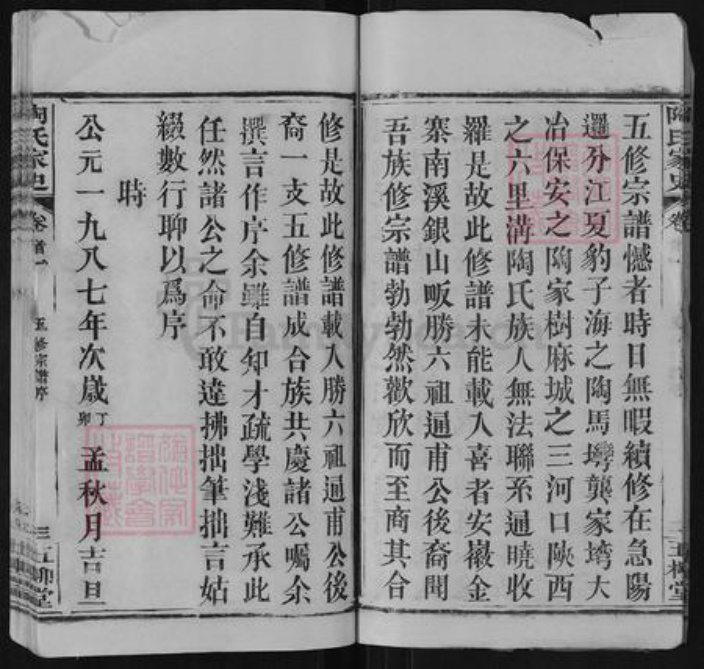 五修宗譜憾者時日無暇續修在急陽
邏分江夏豹子海之陶馬塆龔家塆大
冶保安之陶家樹麻城之三河口陝西
之六里溝陶氏族人無法聯系通曉收
羅是故此修譜未能載入喜者安徽金
寨南溪銀山畈勝六祖通甫公後裔聞
吾族修宗譜勃勃然歡欣而至商其合
修是故此修譜載入勝六祖通甫公後
裔一支五修譜成合族共慶諸公囑余
撰言作序余雖自知才疏學淺難承此
任然諸公之命不敢違拂拙筆拙言姑
綴數行聊以爲序
時
公元一九八七年次歲丁卯孟秋月吉旦
陶氏家史
卷首一
五修宗譜序
三
五柳堂